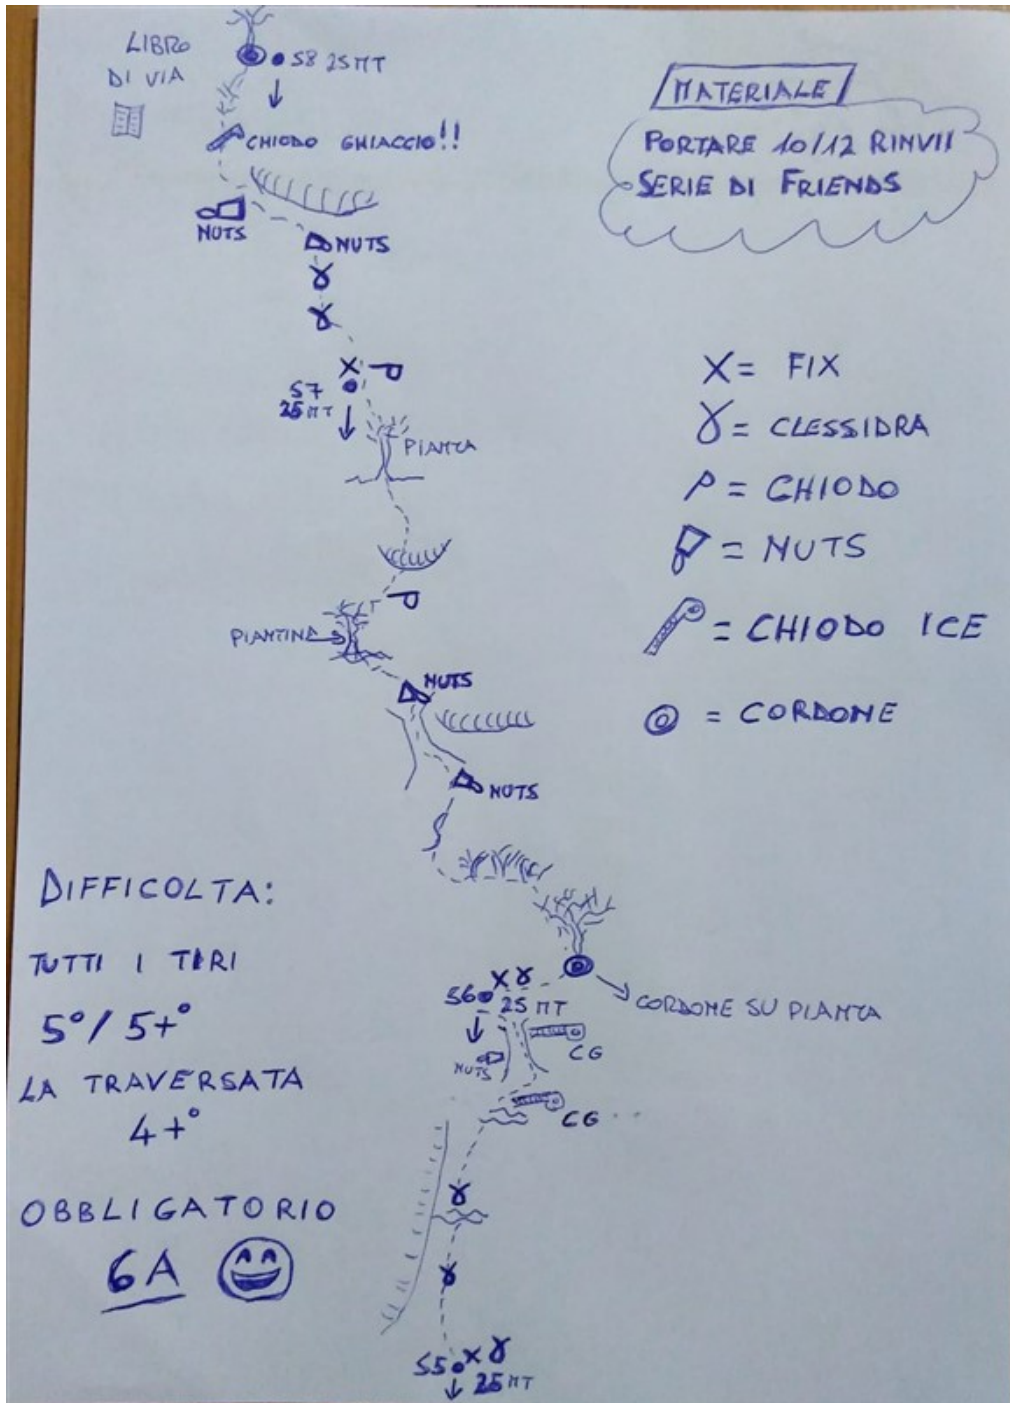 LIBRO
DI VIA
S8 25MT
CHIODO GHIACCIO!!
NUTS
NUTS
S7
25MT
PIANTA
PIANTINA
NUTS
NUTS
S6
25 MT
CORDONE SU PIANTA
NUTS
CG
CG
S5
25 MT
MATERIALE
PORTARE 10/12 RINVII
SERIE DI FRIENDS
X = FIX
Ɣ = CLESSIDRA
P = CHIODO
= NUTS
= CHIODO ICE
= CORDONE
DIFFICOLTA:
TUTTI I TIRI
5°/5+°
LA TRAVERSATA
4+°
OBBLIGATORIO
6A